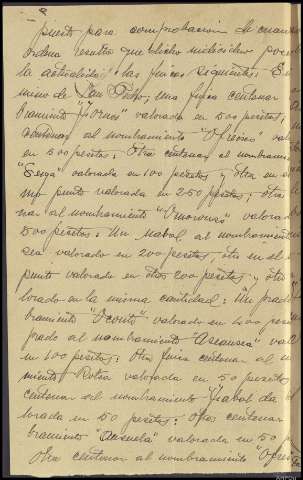 puesto para comprobacion de cuanto
ordena resulta que dicho individuo posee
la actualidad las fincas siguientes: En
mino de San Pedro, una finca centenar
bramiento "Fornos" valorada en 500 pesetas,
centenar al nombramiento "Ofreoso" valo
en 500 pesetas: Otra centenar al nombramie
valorada en 100 pesetas y otra en el
mo punto valorada en 250 pesetas; otra
nar al nombramiento valorada
500 pesetas: Un nabal al nombramiento
valorado en 200 pesetas, otro en el
punto valorado en otras 200 pesetas y otro
lorado en la misma cantidad: Un prado
bramiento "Oconto" valorado en 400 pese
prado al nombramiento valo
en 100 pesetas: Otra finca centenar al n
miento valorada en 50 pesetas
centenar al nombramiento
lorada en 50 pesetas: Otra centenar
bramiento valorada en 50 p
Otra centenar al nombramiento